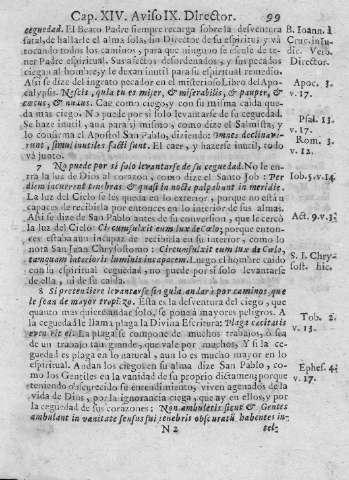 Cap. XIV. Aviso IX. Director. 99
ceguedad. El Beato Padre siempre recarga sobre la desventura
fatal, de hallarse el alma sola, sin Director de su espiritu; và
tocando todos los caminos, para que ninguno se escuse de te-
ner Padre espiritual. Sus afectos desordenados, y sus pecados
ciegan al hombre, y le dexan inutil para su espiritual remedio.
Assi se dize del ingrato pecador en el misterioso Libro del Apo-
calypsis. Nescis, quia tu es miser, & miserabilis, & pauper, &
cæcus, & nudus. Cae como ciego, y con su misma caida que-
da mas ciego. No puede por si solo levantarse de su ceguedad.
Se haze inutil, aun para si mismo, como dize el Salmista, y
lo confirma el Apostol San Pablo, diziendo: Omnes declinave-
runt, simul inutiles facti sunt. El caer, y hazerse inutil, todo
và junto.
7 No puede por si solo levantarse de su ceguedad. No le en-
tra la luz de Dios al corazon, como dize el Santo Job: Per
diem incurrent tenebras & quasi in nocte palpabunt in meridie.
La luz del Cielo se les queda en lo exterior, porque no està
capaces de recibirla por entonces en lo interior de sus almas.
Assi se dize de San Pablo antes de su conversion, que le cercò
la luz del Cielo: Circumfulxit eum lux de Cœlo; porque enton-
ces estaba aun incapaz de recibirla en su interior, como lo
nota San Juan Chrysostomo: Circumfulsit eum lux de Cœlo,
tanquam interioris luminis incapacem. Luego el hombre caido
con su espiritual ceguedad, no puede por si solo levantarse
de ella, ni de su caida.
8 Si pretendiere levantarse sin guia andarà por caminos, que
le sean de mayor tropiezo. Esta es la desventura del ciego, que
quanto mas quiere andar solo, se pone à mayores peligros. A
la ceguedad le llama plaga la Divina Escritura: Plaga cæcitatis
eveniet eis. La plaga se compone de muchos trabajos, ò sea
de un trabajo tan grande, que vale por muchos, Y si la ce-
guedad es plaga en lo natural, aun lo es mucho mayor en lo
espiritual. Andan los ciegos en su alma dize San Pablo, co-
mo los Gentiles en la vanidad de su proprio dictamen; porque
teniendo obscurecido su entendimiento, viven agenados de la
vida de Dios, por la ignorancia ciega, que ay en ellos, y por
la ceguedad de sus corazones: Non ambuletis sicut & Gentes
ambulant in vanitate sensus sui tenebris obscuratũ habentes in-
N 2
B. Ioann. l
Cruc. in su-
dic. Verb.
Director.
Apoc. 3.
v. 17.
Psal. 13.
v. 3.
Rom. 3.
v. 12.
Iob. 5. v. 14.
Act. 9. v. 3.
S. I. Chry-
sost. hic.
Tob. 2.
v. 13.
Ephes. 4.
v. 17.